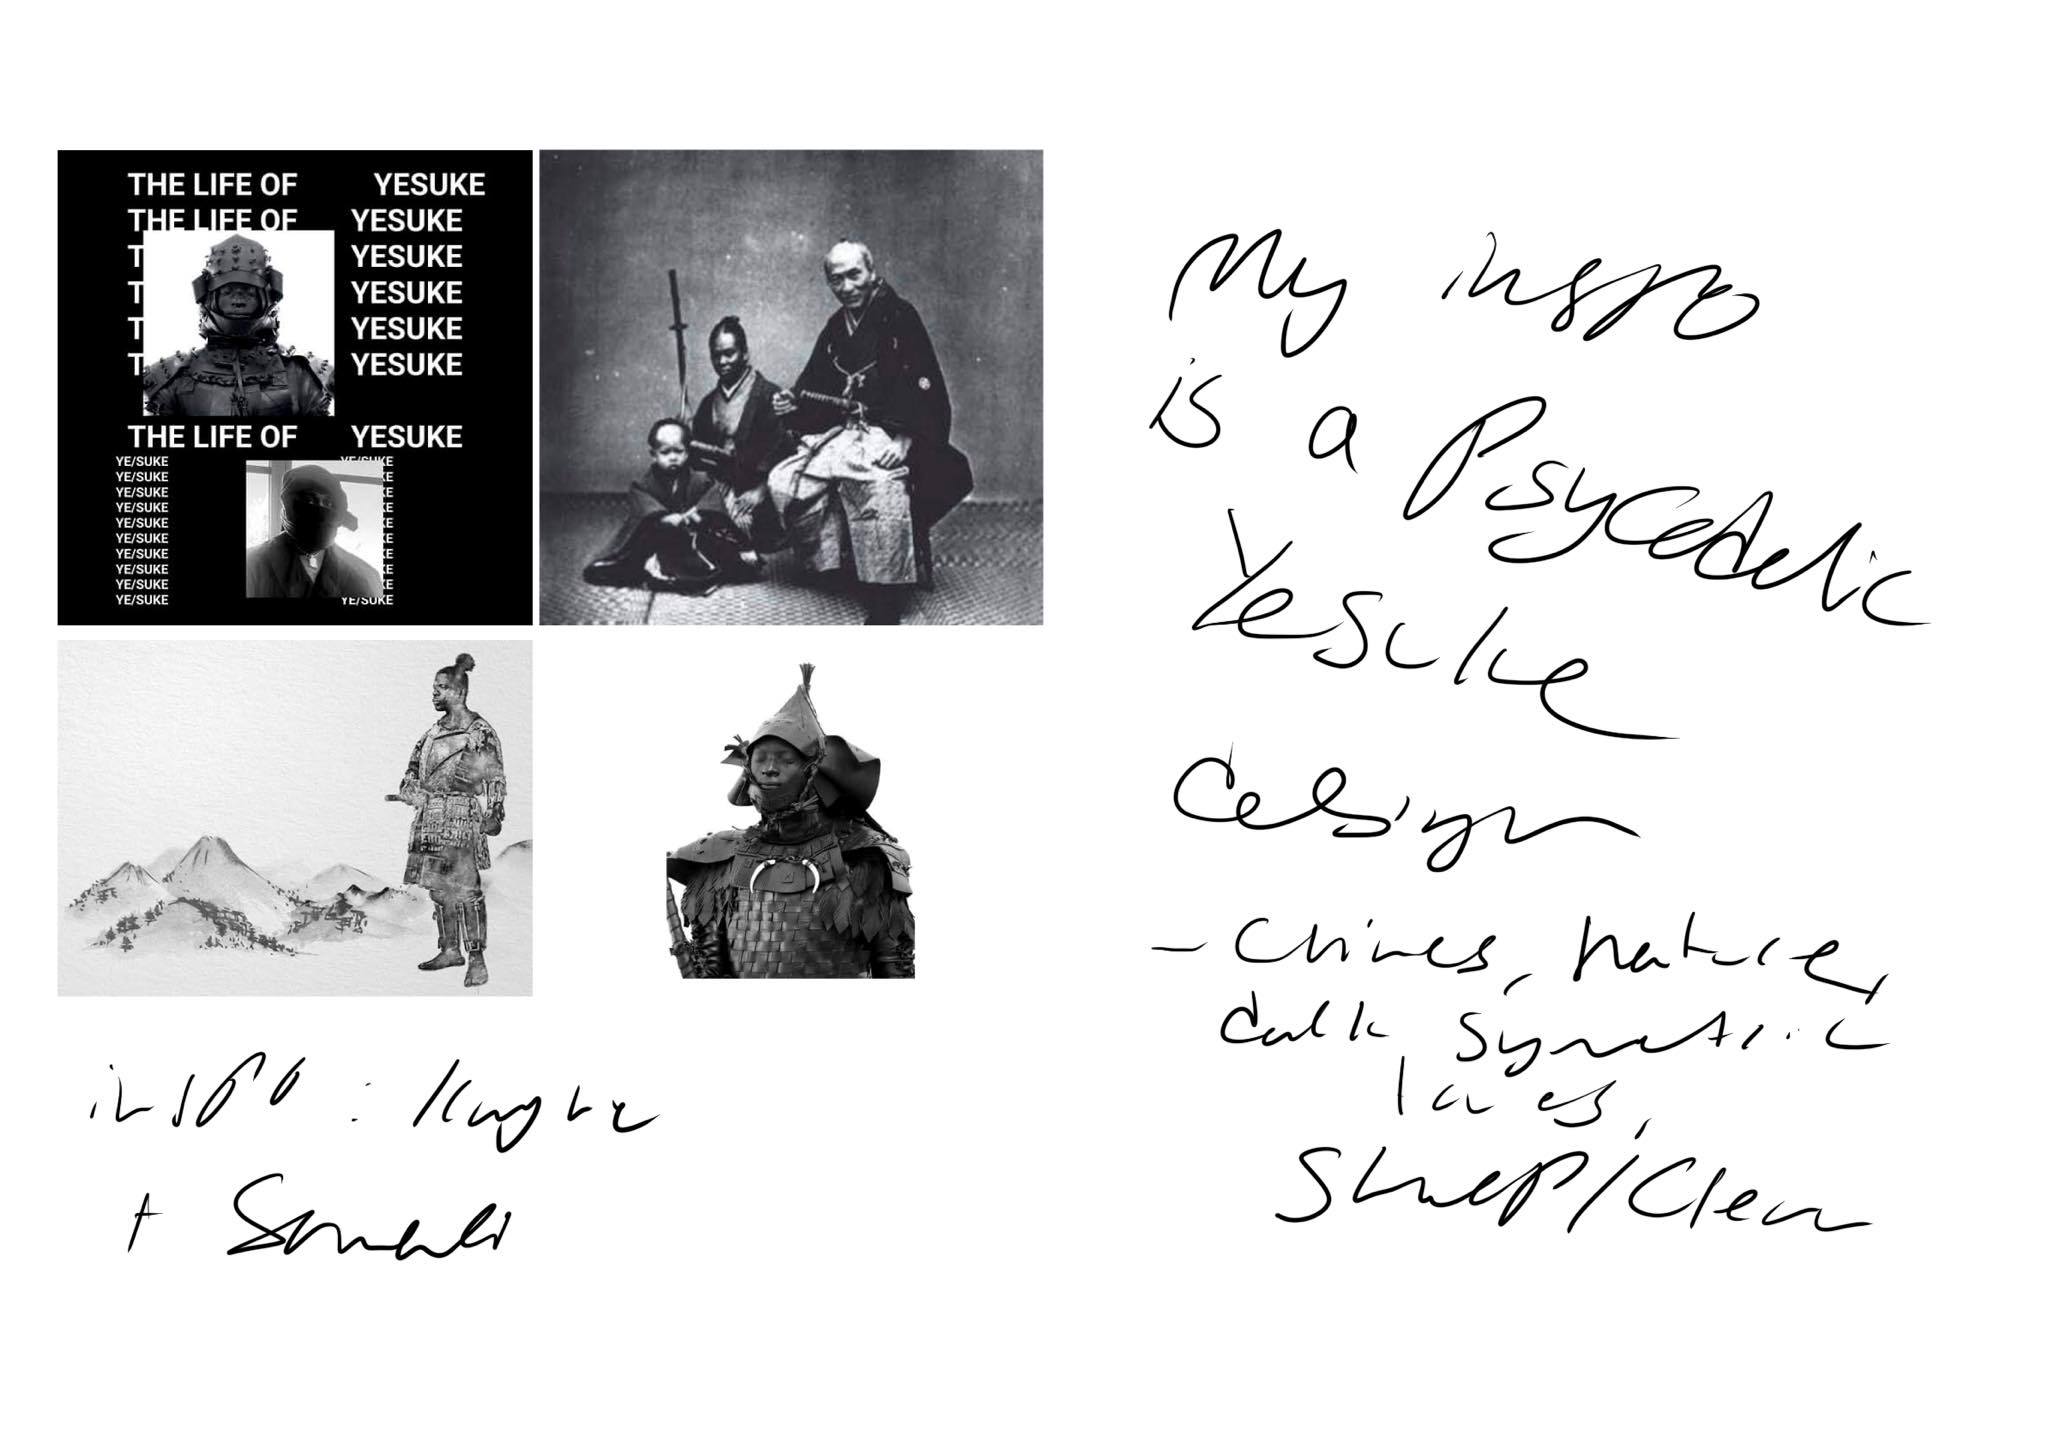 THE LIFE OF YESUKE
THE LIFE OF YESUKE
T YESUKE
T YESUKE
T YESUKE
T YESUKE
THE LIFE OF YESUKE
YE/SUKE YE/SUKE
YE/SUKE KE
YE/SUKE KE
YE/SUKE KE
YE/SUKE KE
YE/SUKE KE
YE/SUKE KE
YE/SUKE KE
YE/SUKE KE
YE/SUKE YE/SUKE
inspo :
+ Somali
My inspo
is a Psycedelic
Yesuke
design
- Chines, nature,
dark, symetric
Sharp/Clean